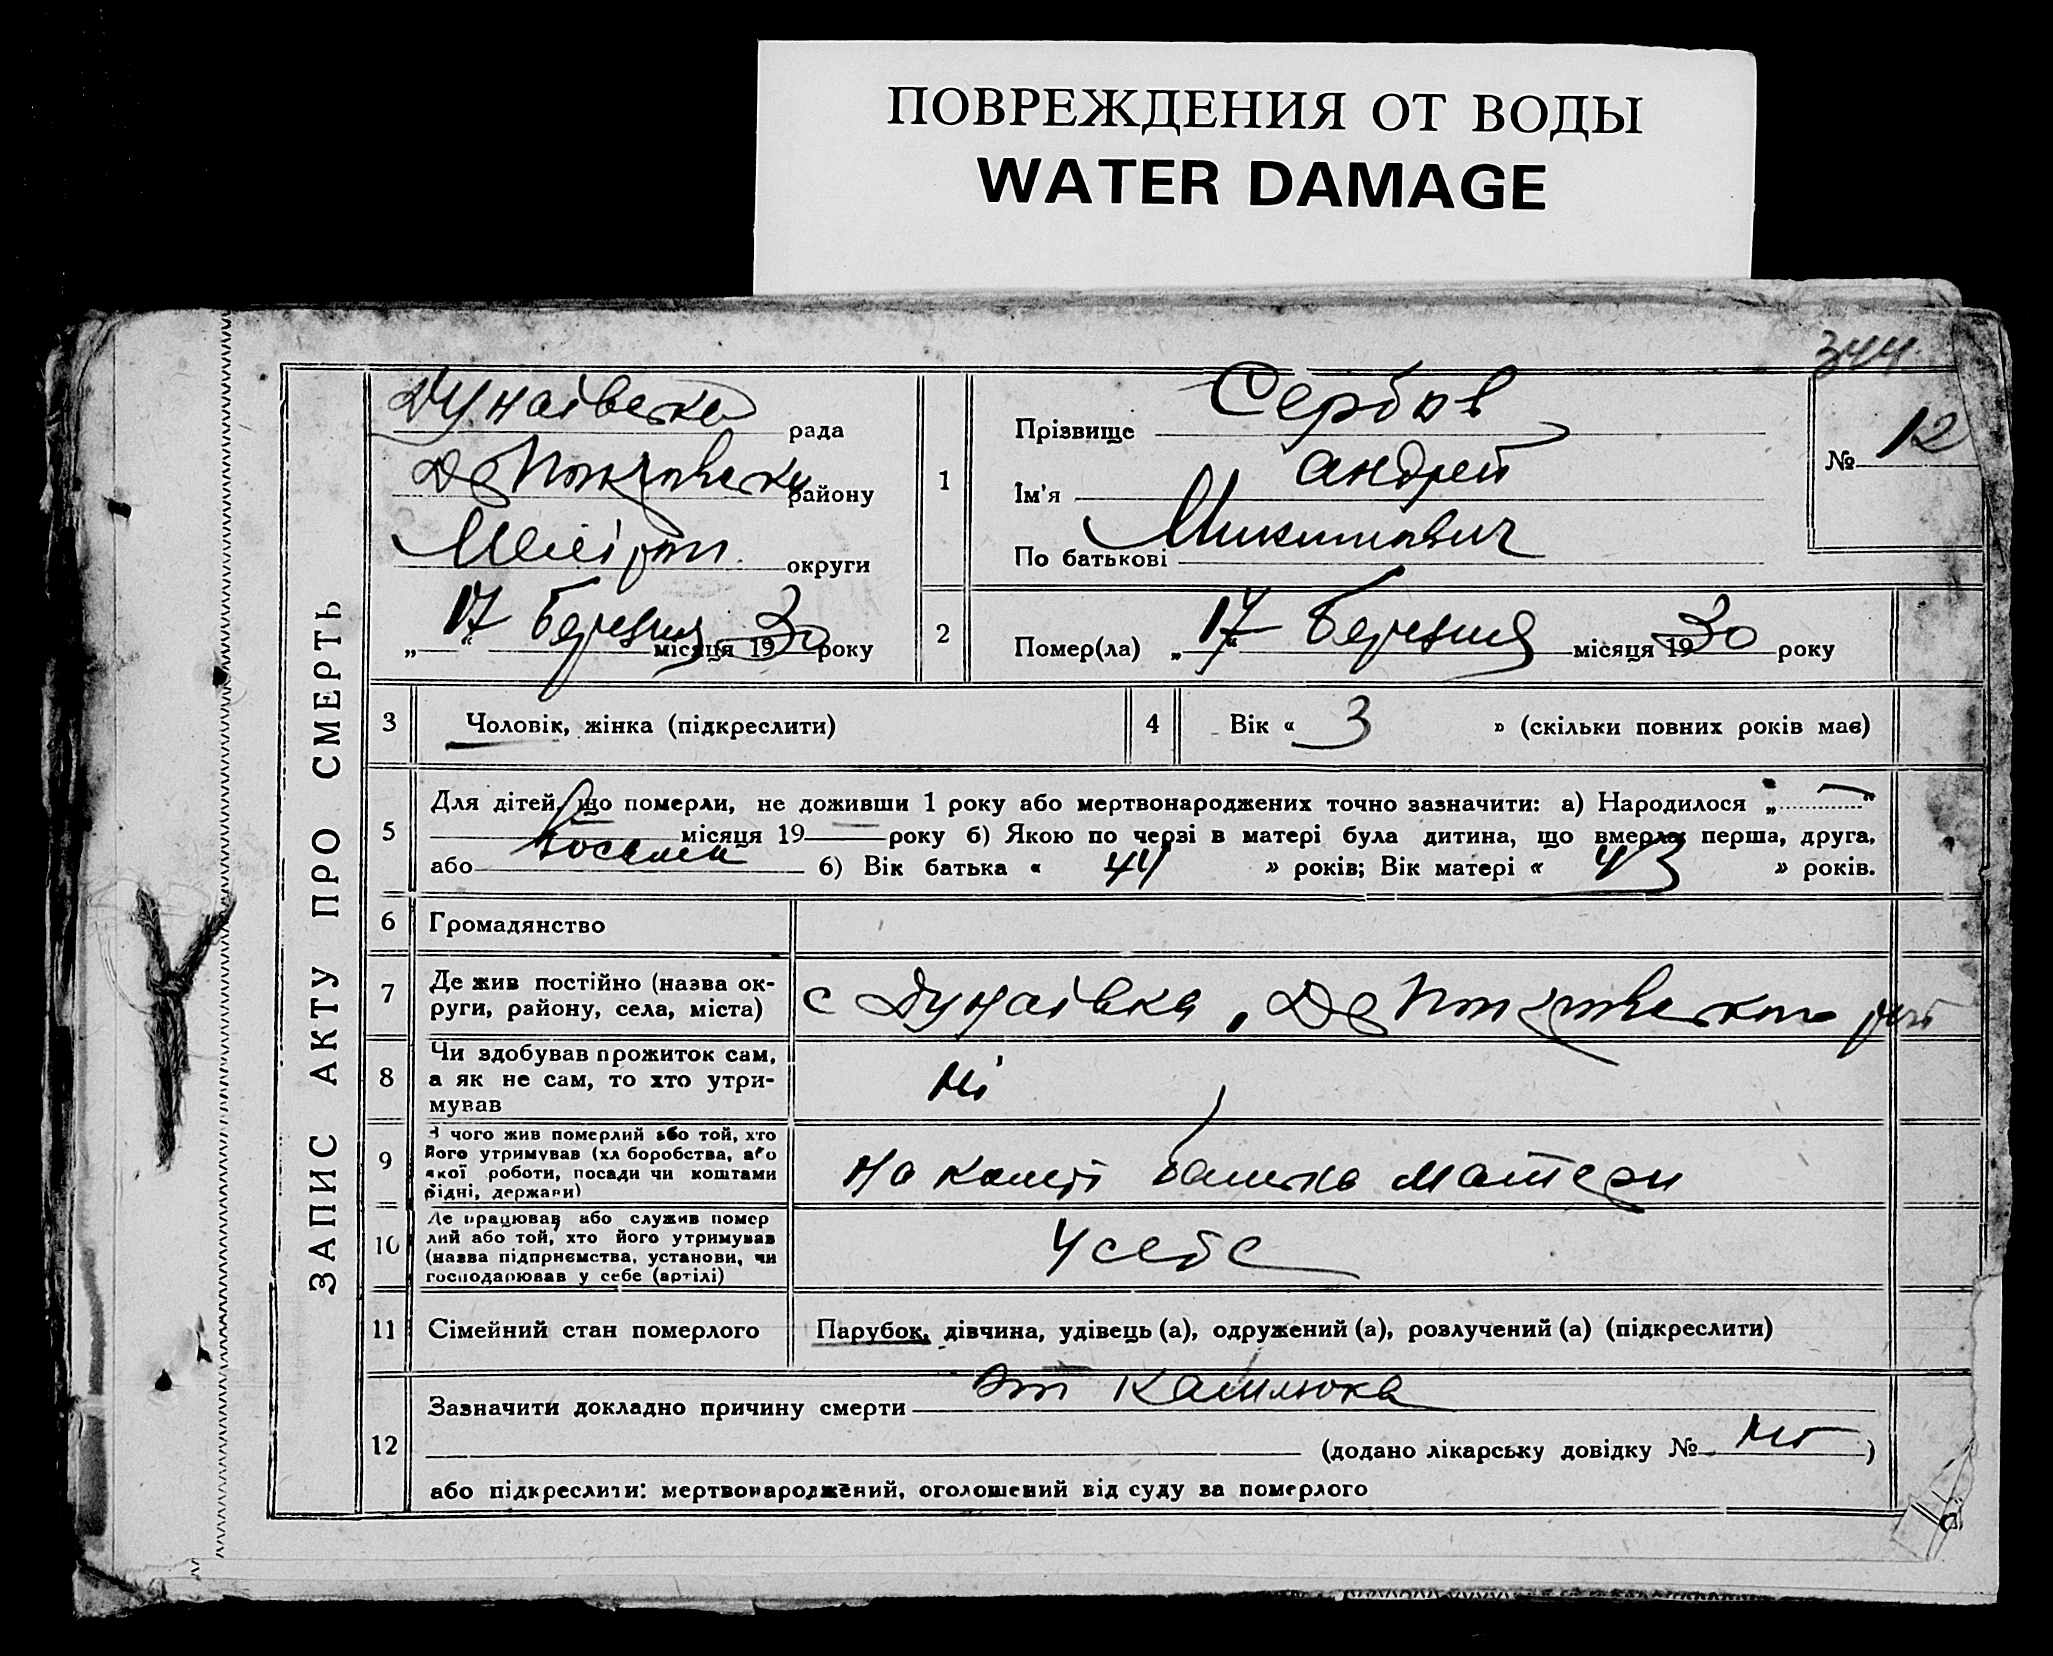 ПОВРЕЖДЕНИЯ ОТ ВОДЫ
WATER DAMAGE
344
ЗАПИС АКТУ ПРО СМЕРТЬ
Дунаївська рада
району
округи
„17“ березня місяця 1930 року
1
Прізвище Сербов
Ім'я Андрей
По батькові Микитович
№ 12
2
Помер(ла) „17“ березня місяця 1930 року
3 Чоловік, жінка (підкреслити)
4 Вік « 3 » (скільки повних років має)
5
Для дітей, що померли, не доживши 1 року або мертвонароджених точно зазначити: а) Народилося „—“
місяця 19— року б) Якою по черзі в матері була дитина, що вмерла: перша, друга,
або восьма б) Вік батька « 44 » років; Вік матері « 43 » років.
6 Громадянство
7
Де жив постійно (назва ок-
руги, району, села, міста)
с Дунаївка,
8
Чи здобував прожиток сам,
а як не сам, то хто утри-
мував
Ні
9
З чого жив померлий або той, хто
його утримував (хл боробства, або
якої роботи, посади чи коштами
рідні, держави)
на кошті батька матери
10
Де працював або служив помер
лий або той, хто його утримував
(назва підприємства, установи, чи
господарював у себе (артілі)
У себе
11 Сімейний стан померлого
Парубок, дівчина, удівець (а), одружений (а), розлучений (а) (підкреслити)
12
Зазначити докладно причину смерти от кашлюка
(додано лікарську довідку № )
або підкреслити: мертвонароджений, оголошений від суду за померлого